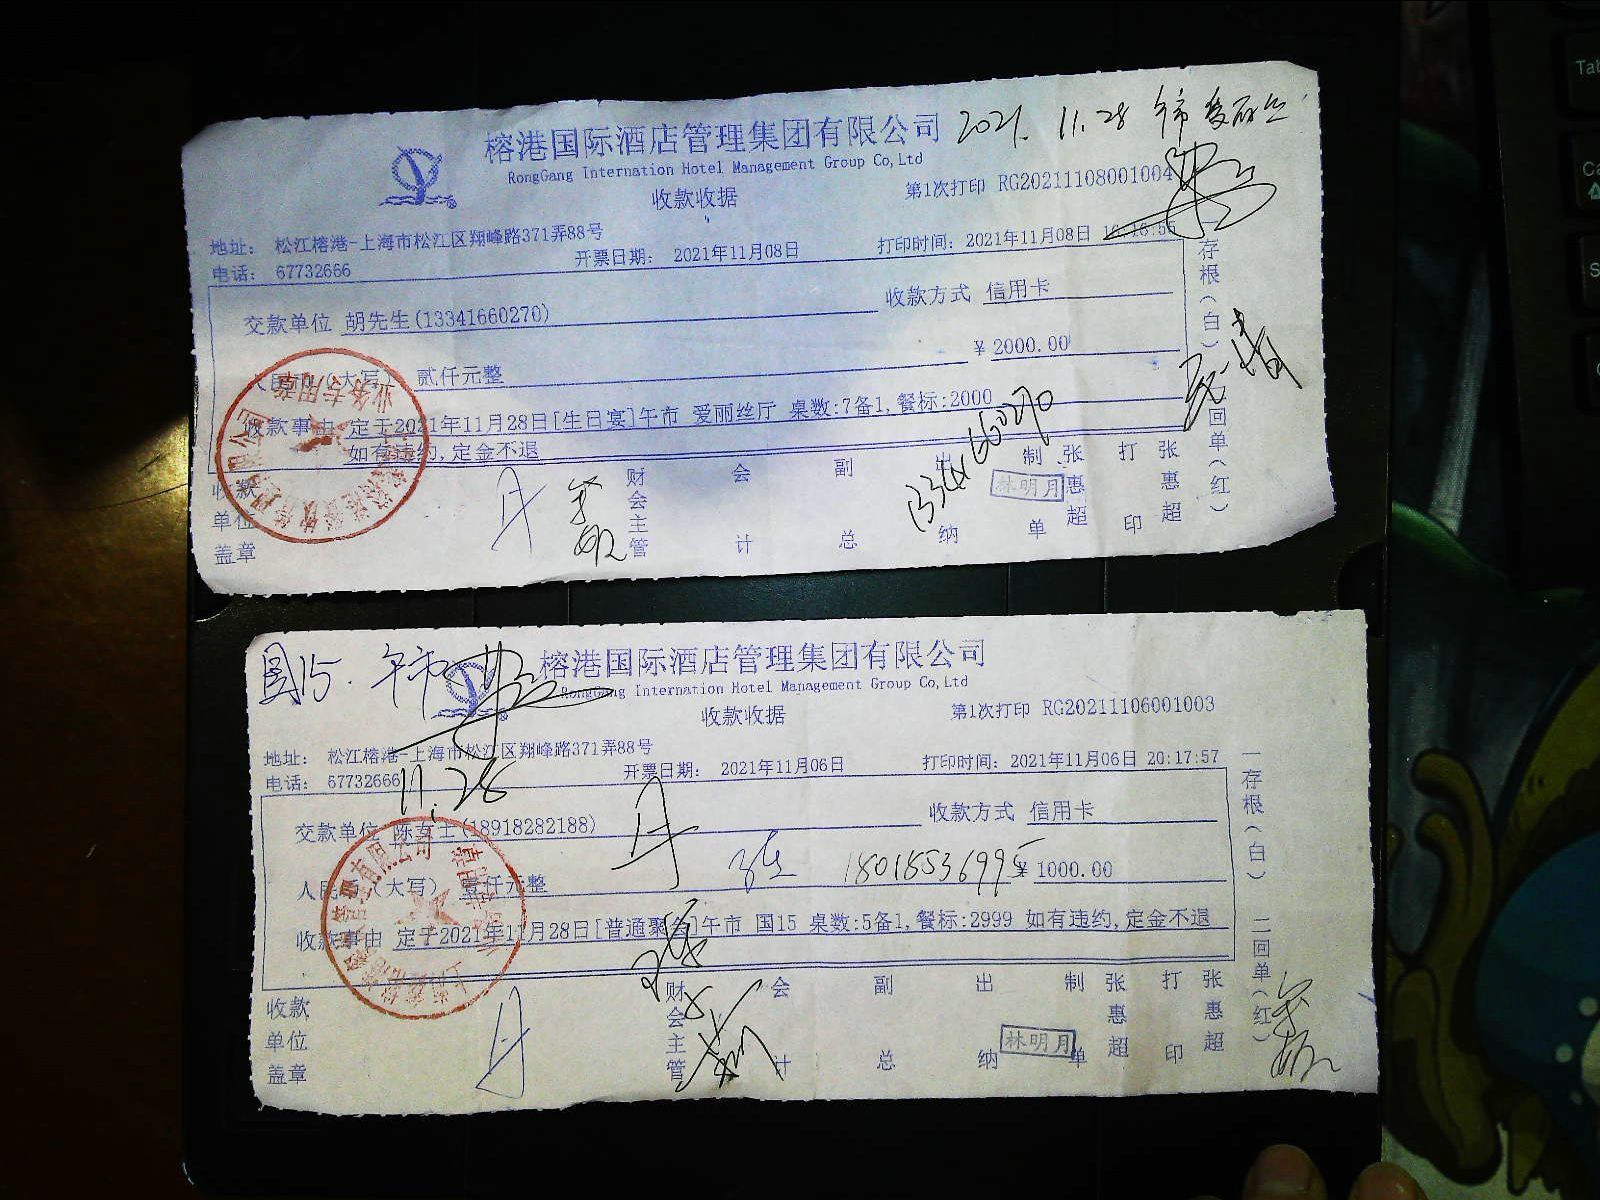 榕港国际酒店管理集团有限公司 2021. 11.28 午市
RongGang International Hotel Management Group Co,Ltd
收款收据
第1次打印 RG20211108001004
地址： 松江榕港-上海市松江区翔峰路371弄88号
电话： 67732666
开票日期： 2021年11月08日
打印时间：2021年11月08日 16:16:55
交款单位 胡先生(13341660270)
收款方式 信用卡
人民币（大写） 贰仟元整
￥ 2000.00
收款事由 定于2021年11月28日[生日宴]午市 爱丽丝厅 桌数:7备1,餐标:2000
如有违约,定金不退
13341660270
收款单位盖章
财会主管
会计
副总
出纳
制单
张惠超
打印
张惠超
林明月
业务专用章
一存根（白） 二回单（红）
国15. 午市
榕港国际酒店管理集团有限公司
RongGang International Hotel Management Group Co,Ltd
收款收据
第1次打印 RG20211106001003
地址： 松江榕港-上海市松江区翔峰路371弄88号
电话： 67732666
11.28
开票日期： 2021年11月06日
打印时间：2021年11月06日 20:17:57
交款单位 陈女士(18918282188)
收款方式 信用卡
人民币（大写） 壹仟元整
18018536995
￥ 1000.00
收款事由 定于2021年11月28日[普通聚会]午市 国15 桌数:5备1,餐标:2999 如有违约,定金不退
收款单位盖章
财会主管
会计
副总
出纳
制单
张惠超
打印
张惠超
林明月
一存根（白） 二回单（红）